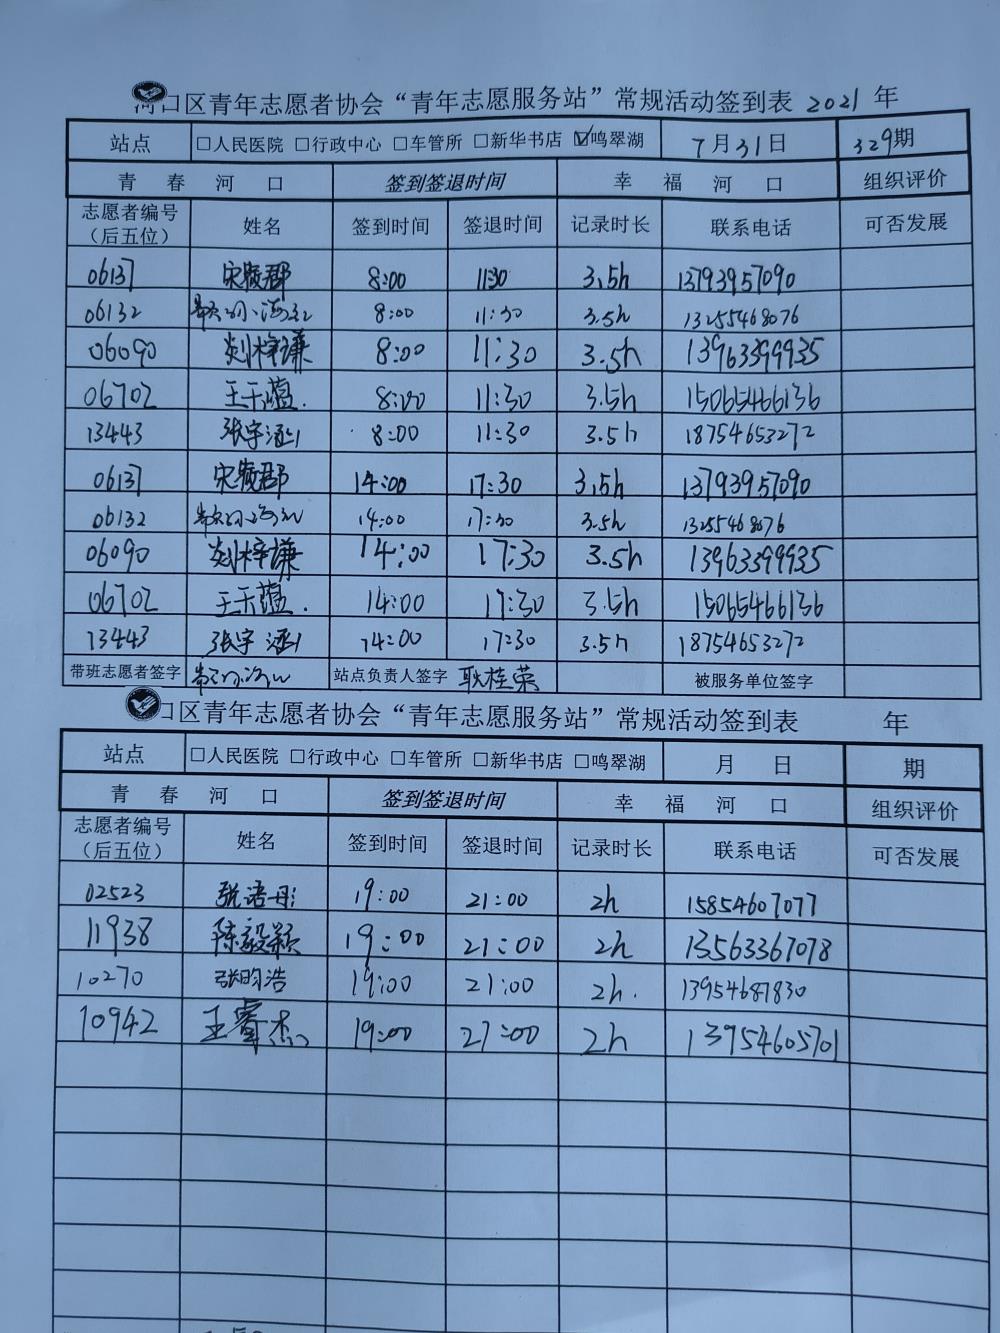 河口区青年志愿者协会“青年志愿服务站”常规活动签到表 2021 年
站点 □人民医院 □行政中心 □车管所 □新华书店 ☑鸣翠湖 7月31日 329期
青 春 河 口 签到签退时间 幸 福 河 口 组织评价
志愿者编号（后五位） 姓名 签到时间 签退时间 记录时长 联系电话 可否发展
06137 8:00 11:30 3.5h 13793957090
06132 8:00 11:30 3.5h 13255468076
06090 刘梓谦 8:00 11:30 3.5h 13963399935
06702 王天蕴. 8:00 11:30 3.5h 15065466136
13443 张宇涵 8:00 11:30 3.5h 18754653272
06137 14:00 17:30 3.5h 13793957090
06132 14:00 17:30 3.5h 13255468076
06090 刘梓谦 14:00 17:30 3.5h 13963399935
06702 王天蕴. 14:00 17:30 3.5h 15065466136
13443 张宇涵 14:00 17:30 3.5h 18754653272
带班志愿者签字 站点负责人签字 耿桂荣 被服务单位签字
口区青年志愿者协会“青年志愿服务站”常规活动签到表 年
站点 □人民医院 □行政中心 □车管所 □新华书店 □鸣翠湖 月 日 期
青 春 河 口 签到签退时间 幸 福 河 口 组织评价
志愿者编号（后五位） 姓名 签到时间 签退时间 记录时长 联系电话 可否发展
02523 张语丹 19:00 21:00 2h 15854607077
11938 陈毅颖 19:00 21:00 2h 13563367078
10270 张昀浩 19:00 21:00 2h. 13954681830
10942 王睿杰 19:00 21:00 2h 13954605701